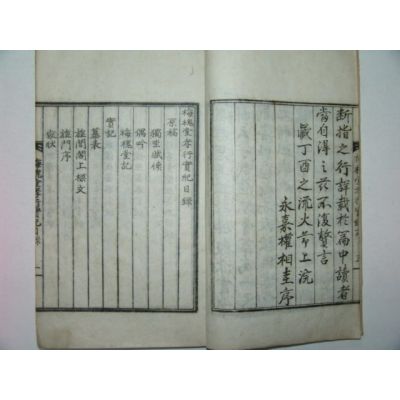 斷指之行詳載於篇中讀者
當自得之玆不復贅言
歲丁酉之流火節上浣
永嘉權相圭序
梅槐堂孝行實紀目錄
原稿
獨坐感懷
偶吟
梅槐堂記
實記
墓表
旌閭閣上樑文
旌門序
家狀